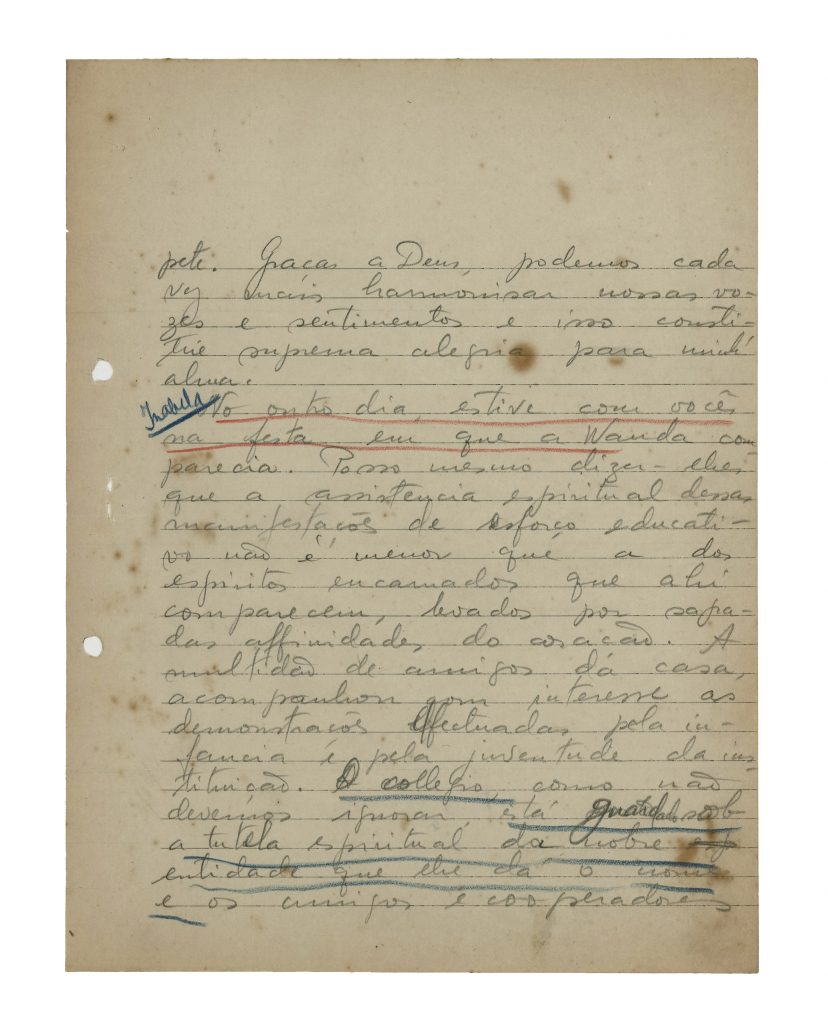 pete. Graças a Deus, podemos cada
vez mais harmonisar nossas vo-
zes e sentimentos e isso consti-
tue suprema alegria para minh'
alma.
Izabela
No outro dia, estive com vocês
na festa em que a Wanda com
parecia. Posso mesmo dizer-lhes
que a assistencia espiritual dessas
manifestações de esforço educati-
vo não é menor que a dos
espiritos encarnados que ahi
comparecem, levados por sagra-
das affinidades do coração. A
multidão de amigos da casa,
acompanhou com interesse as
demonstrações effectuadas pela in-
fancia e pela juventude da ins-
tituição. O collegio, como não
devemos ignorar, está guardado sob
a tutela espiritual da nobre
entidade que lhe dá o nome
e os amigos e cooperadores